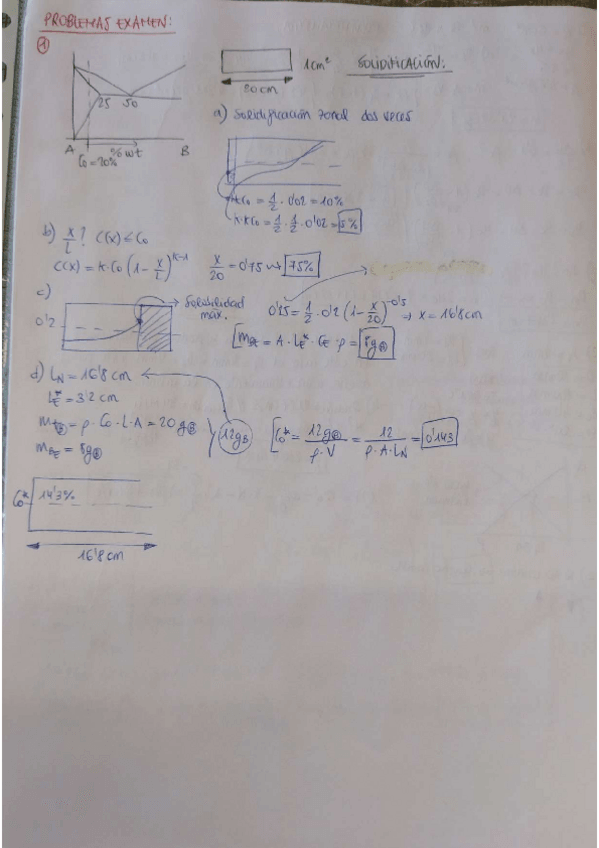 PROBLEMAS EXAMEN:
①
1cm²
SOLIDIFICACIÓN:
20cm
25 50
A %wt B
C₀=20%
a) Solidificación zonal dos veces
k·C₀ = 1/2 · 0'02 = 10%
k·k·C₀ = 1/2 · 1/2 · 0'02 = 5%
b) x/L? C(x) ≤ C₀
C(x) = k·C₀ (1 - x/L)^k-1 x/20 = 0'75 → 75%
c)
Solubilidad
máx.
0'2
0'25 = 1/2 · 0'2 (1 - x/20)^-0'5 → x = 16'8cm
= A · L_E* · C_E · ρ = 8g Ⓑ
d) L_N = 16'8 cm
L_E* = 3'2 cm
= ρ · C₀ · L · A = 20 g Ⓑ
= 8g Ⓑ
12g_B
C₀* = 12gⒷ / ρ·V = 12 / ρ·A·L_N = 0'143
C₀* 14'3%
16'8 cm